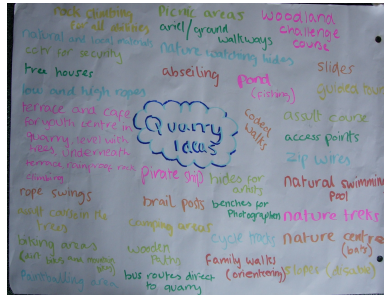 rock climbing
for all abilities
Picnic areas
woodland
challenge
course
ariel/ground
walkways
natural and local materials
cctv for security
nature watching hides
slides
tree houses
abseiling
pond
(fishing)
guided tours
low and high ropes
terrace and cafe
for youth centre in
quarry, level with
trees, underneath
climbing
Quarry
Ideas
coded
walks
assult course
access points
zip wires
pirate ship
hides for
artists
natural swimming
pool
rope swings
brail posts
benches for
Photographers
nature treks
trees
camping areas
cycle tracks
nature centre
(bats)
biking areas
wooden
paths
Family walks
(orienteering)
slopes (disable)
footballing area
bus routes direct
to quarry